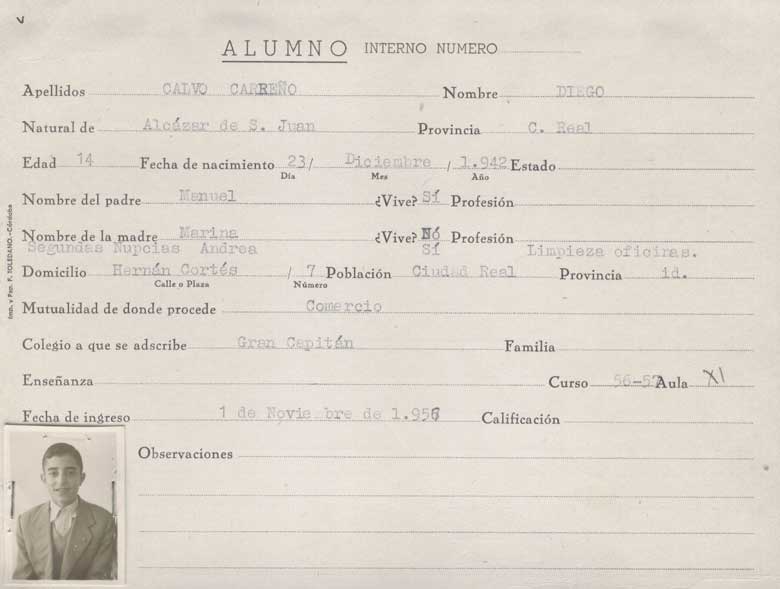 v
ALUMNO INTERNO NUMERO
Apellidos CALVO CARREÑO Nombre DIEGO
Natural de Alcázar de S. Juan Provincia C. Real
Edad 14 Fecha de nacimiento 23 / Diciembre / 1.942 Estado
Día Mes Año
Nombre del padre Manuel ¿Vive? Sí Profesión
Nombre de la madre Marina ¿Vive? Nó Profesión
Segundas Nupcias Andrea Sí Limpieza oficinas.
Domicilio Hernán Cortés / 7 Población Ciudad Real Provincia id.
Calle o Plaza Número
Mutualidad de donde procede Comercio
Colegio a que se adscribe Gran Capitán Familia
Enseñanza Curso 56-57 Aula XI
Fecha de ingreso 1 de Noviembre de 1.956 Calificación
Observaciones
Imp. y Pap. F. TOLEDANO.-Córdoba